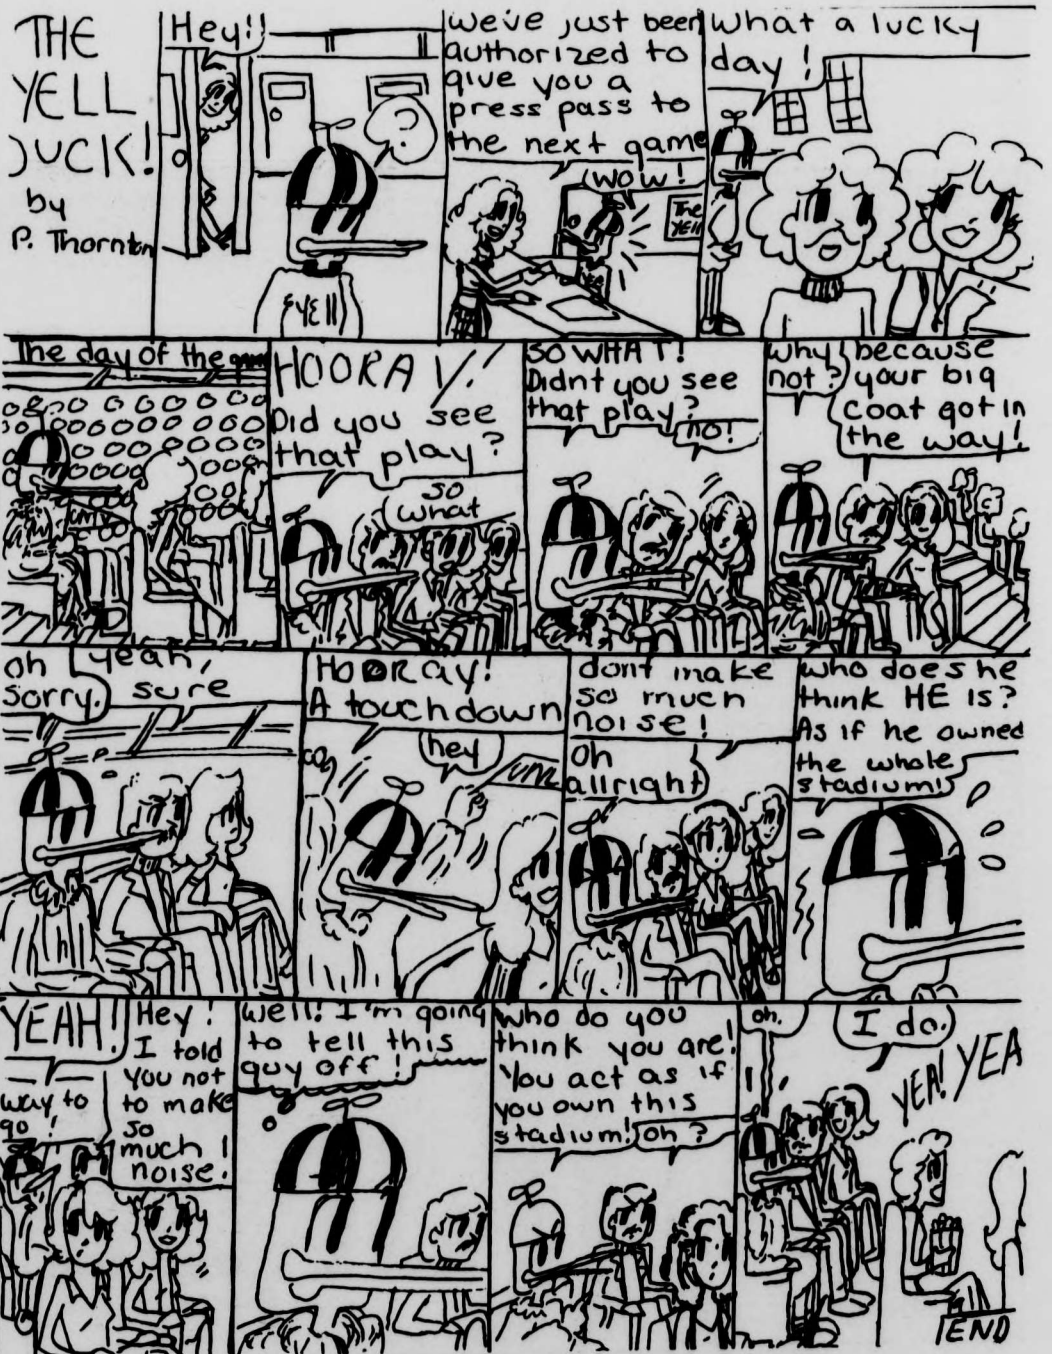 THE
YELL
DUCK!
by
P. Thornton
Hey!!
?
YELL
We've just been
authorized to
give you a
press pass to
the next game
WOW!
The
YELL
What a lucky
day!
The day of the game
HOORAY!!
Did you see
that play?
so
what
SO WHAT!
Didnt you see
that play?
no!
why
not?
because
your big
coat got in
the way!
oh
sorry.
yeah,
sure
HOORAY!
A touchdown
hey
dont make
so much
noise!
Oh
allright
who does he
think HE is?
As if he owned
the whole
stadium!
YEAH!
way to
go!
Hey!
I told
you not
to make
so
much
noise.
Well! I'm going
to tell this
guy off!
Who do you
think you are!
You act as if
you own this
stadium!
oh?
oh.
I do.
YEA!
YEA
END